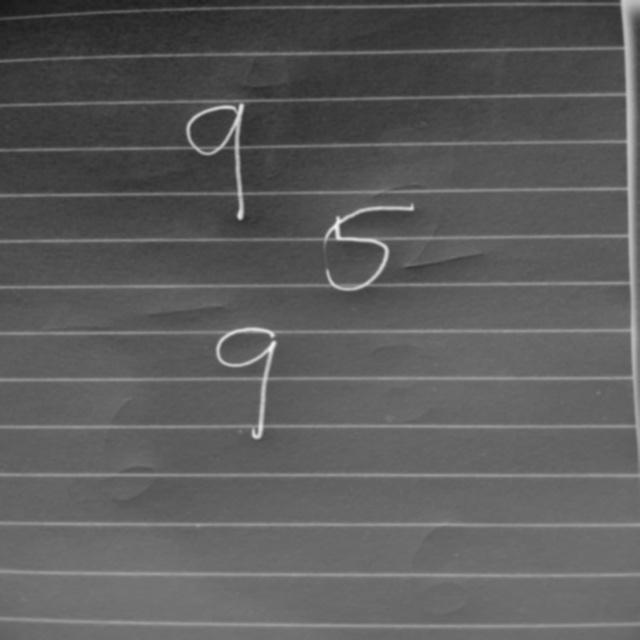 9
5
9